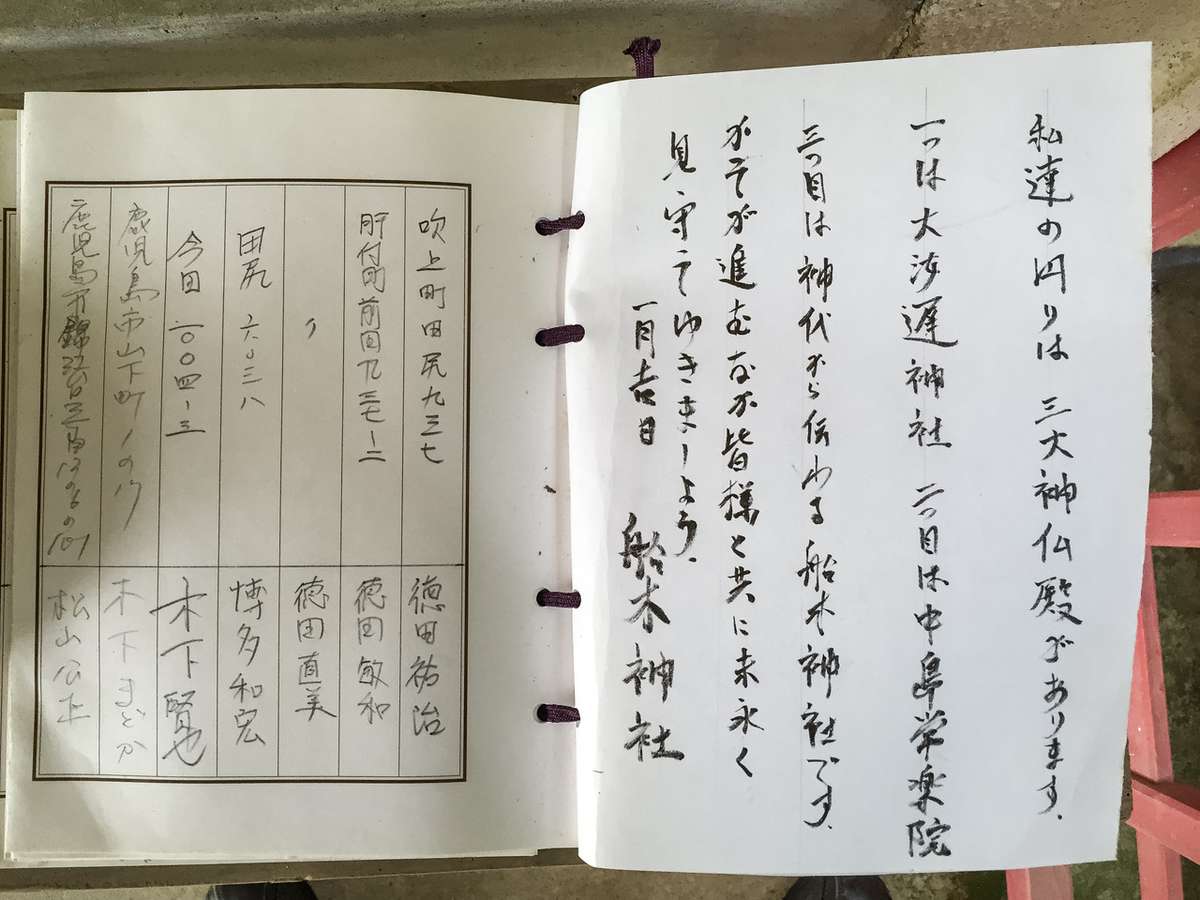 私達の円りは 三大神仏殿があります.
一つは大汝遅神社 二つ目は中島常楽院
三つ目は神代から伝わる船木神社です.
かそが進むなか皆様と共に末永く
見守てゆきましょう.
一月吉日 船木神社
吹上町田尻九三七 徳田祐治
肝付町前田九三七-二 徳田敏和
〃 徳田直美
田尻 六〇三八 博多和宏
今田 一〇〇四-三 木下賢也
鹿児島市山下町 木下まどか
鹿児島市錦江台 松山公正